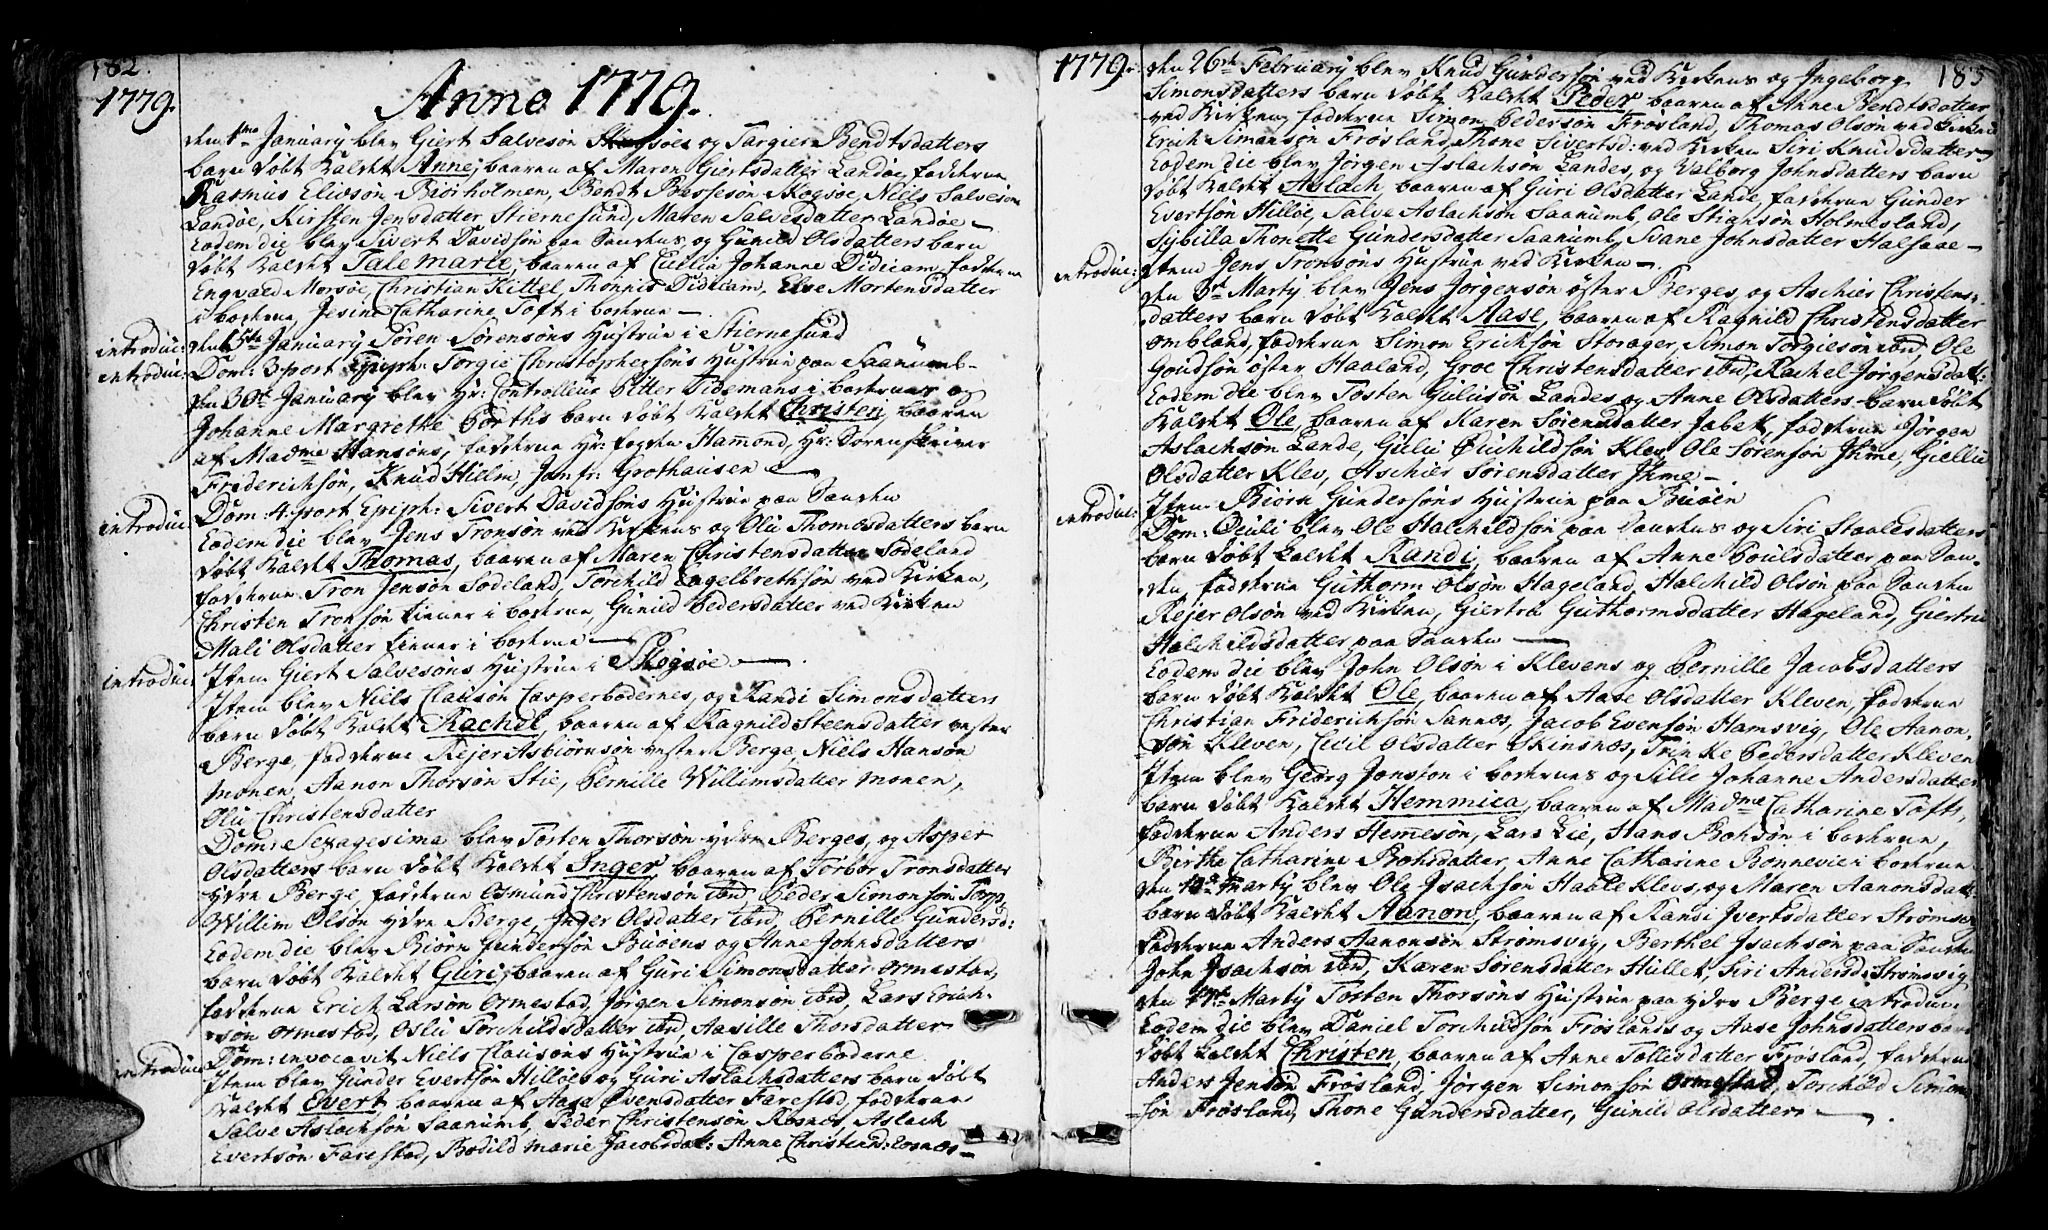 182.
1779.
Anno 1779.
den 1me January blev Giert Salvesøn Skogsøes og Targier Bendtsdatters
barn døbt kaldet Anne, baaren af Maren Giertsdatter Landøe, fadderne
Rasmus Eliasøn Biørholmen, Bendt Bessesøn Skogsøe, Niels Salvesøn
Landøe, Kirsten Jensdatter Stiernesund, Maren Salvesdatter Landøe —
Eodem die blev Sivert Davidsøn paa Sandens og Gunild Olsdatters barn
døbt kaldet Talemarie, baaren af Cicilia Johanne Didicam, fadderne
Engvald Morsøe, Christian Kittel, Thonnis Didicam, Else Mortensdatter
i boderne, Jesine Catharine Toft i boderne —
introduc: den 6te January Søren Sørensøns Hustrue i Stiernesund
introduc: Dom: 3 post Epiph: Torgie Christophersøns Hustrue paa Saanumb —
den 30te January blev Hr: Controlleur Pitter Tidemans i bodernes og
Johanne Margrethe Borths barn døbt kaldet Christen, baaren
af Madme Hansøns, fadderne Hr: fogden Hamond, Hr: Sorenskriver
Friderichsøn, Knud Hillm, Jomfr: Grothausen —
introduc: Dom: 4 post Epiph: Sivert Davidsøns Hustrue paa Sanden
Eodem die blev Jens Tronsøn ved Kirkens og Olu Thomasdatters barn
døbt kaldet Thomas, baaren af Maren Christensdatter Sodeland
fadderne Tron Jensøn Sodeland, Torchild Engelbrethsøn ved Kirken,
Christen Tronsøn tiener i boderne, Gunild Pedersdatter ved Kirken
Mali Olsdatter tiener i boderne —
introduc: Item Giert Salvesøns Hustrue i Skogsøe —
Item blev Niels Clausøn Casperbodernes, og Randi Simonsdatters
barn døbt kaldet Rachel, baaren af Ragnild Steensdatter vester
Berge, fadderne Rejer Asbiørnsøn vester Berge, Niels Hansøn
monen, Aanon Thorsøn Stie, Pernille Willimsdatter monen,
Olu Christensdatter
Dom: Sexagesima blev Tosten Thorsøn ydre Berges, og Asper
Olsdatters barn døbt kaldet Inger, baaren af Torbor Tronsdatter
ydre Berge, fadderne Osmund Christensøn ibid, Peder Simonsøn Torp,
Willim Olsøn ydre Berge, Inger Olsdatter ibid, Pernille Gundersd:
Eodem die blev Biørn Gundersøn Buøens og Anne Johnsdatters
barn døbt kaldet Guri, baaren af Guri Simonsdatter ormestad,
fadderne Erich Larsøn Ormestad, Jørgen Simonsøn ibid, Lars Erich-
søn ormestad, Oslu Torchildsdatter ibid, Aasille Thorsdatter
introduc: Dom: invocavit Niels Clausøns Hustrue i Casperboderne
Item blev Gunder Evertsøn Hilløes og Guri Aslachsdatters barn døbt
kaldet Evert, baaren af Aasa Evensdatter Farestad, fadderne
Salve Aslachsøn Saanumb, Peder Christensøn Rosnes, Aslach
Evertsøn Farestad, Bodild Marie Jacobsdat: Anne Christensd: Rosnes —
1779. den 26de February blev Knud Gundersøn ved Kirkens og Ingeborg
Simonsdatters barn døbt kaldet Peder, baaren af Anne Bendtsdatter
ved Kirken, fadderne Simon Pedersøn Frøsland, Thomas Olsøn ved Kirken
Erich Simonsøn Frøsland, Thone Sivertsd: ved Kirken Siri Knudsdatter
Eodem die blev Jørgen Aslachsøn Landes, og Valborg Johnsdatters barn
døbt kaldet Aslach, baaren af Guri Olsdatter Lande, fadderne Gunder
Evertsøn Hilløe, Salve Aslachsøn Saanumb, Ole Stiensøn Holmesland,
Sybilla Thonette Gundersdatter Saanumb, Svane Johnsdatter Halsaae —
introduc: Item Jens Tronsøns Hustrue ved Kirken —
den 3de Marty blev Jens Jørgensøn øster Berges, og Aschier Christens-
datters barn døbt kaldet Aase, baaren af Ragnild Christensdatter
ombland, fadderne Simon Ericksøn Storager, Simon Torgiesøn ibid, Ole
Goudsøn øster Haaland, Groe Christensdatter ibid, Rachel Jørgensdat:
Eodem die blev Tosten Gulusøn Landes og Anne Olsdatters barn døbt
kaldet Ole, baaren af Karen Sørensdatter Jabek, fadderne Jørgen
Aslachsøn Lande, Gulu Øuchildsøn Klev, Ole Sørensøn Jhme, Giellu
Olsdatter Klev, Aschier Sørensdatter Jhme —
introduc: Item Biørn Gundersøns Hustrue paa Buøen
Dom: Oculi blev Ole Halchildsøn paa Sandens og Siri Staalesdatters
barn døbt kaldet Randi, baaren af Anne Poulsdatter paa San-
den, fadderne Guthorm Olsøn Hageland, Halchild Olsøn paa Sanden
Rejer Olsøn ved Kirken, Giertru Guthormsdatter Hageland, Giertru
Halchildsdatter paa Sanden —
Eodem die blev John Olsøn i Klevens og Pernille Jacobsdatters
barn døbt kaldet Ole, baaren af Aase Olsdatter Kleven, fadderne
Christian Friderichsøn Sannes, Jacob Evensøn Hamsvig, Ole Aanon-
søn Kleven, Cicil Olsdatter Skinsnes, Trinke Pedersdatter Kleven
Item blev Georg Jonston i bodernes og Sille Johanne Andersdatters
barn døbt kaldet Hemmica, baaren af Madme Catharine Tofts,
fadderne Anders Hemesøn, Lars Lie, Hans Bohsøn i boderne,
Birthe Catharine Bohsdatter, Anne Catharine Bonnevie i boderne
den Marty blev Ole Isachsøn Haale Klevs, og Maren Aanonsdat:
barn døbt kaldet Aanon, baaren af Randi Ivertsdatter Strømsvig
fadderne Anders Aanonsøn Strømsvig, Berthel Isachsøn paa Sanden
John Isachsøn ibid, Karen Sørensdatter Hullet, Siri Andersd: Strømsvig
den Marty Tosten Thorsøns Hustrue paa ydre Berge introduc:
Eodem die blev Daniel Torchildsøn Frøslands og Aase Johnsdatters barn
døbt kaldet Christen, baaren af Anne Tollesdatter Frøsland, fadderne
Anders Jensøn Frøsland, Jørgen Simonsøn Ormestad, Torchild Simon-
søn Frøsland, Thone Gundersdatter, Gunild Olsdatter —